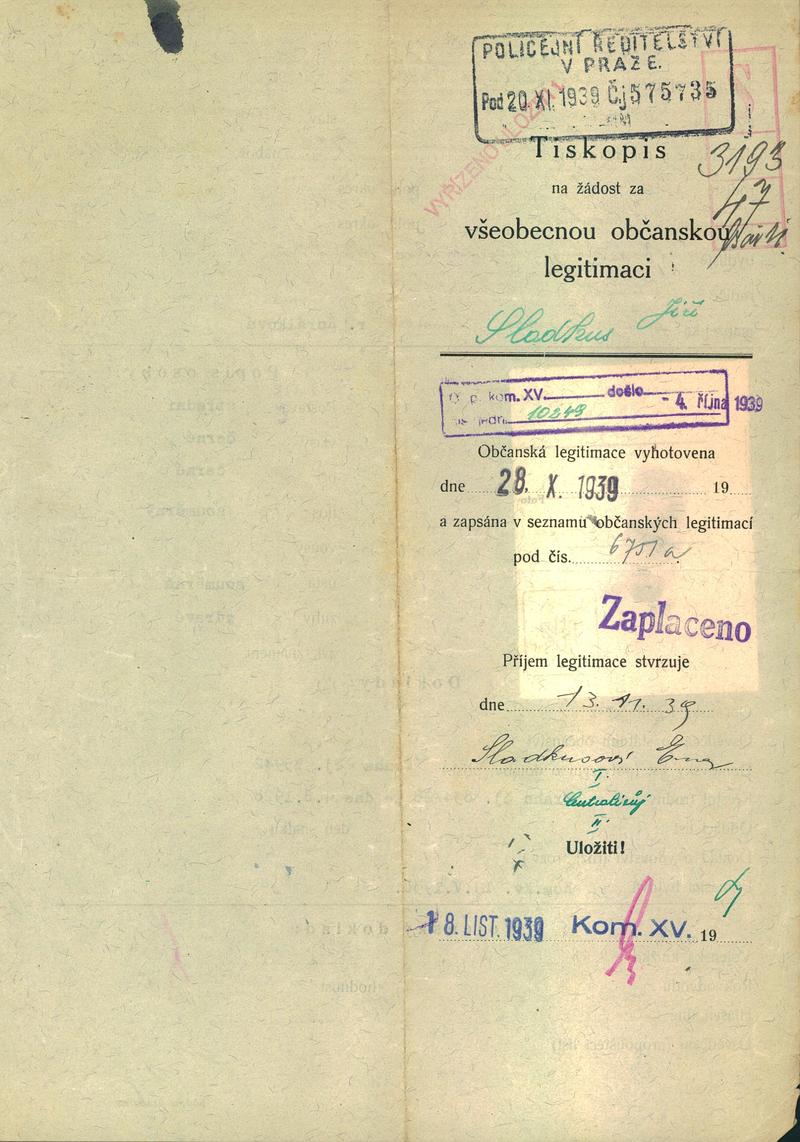 POLICEJNÍ ŘEDITELSTVÍ
V PRAZE.
Pod 20. XI. 1939 Čj 575735
VYŘÍZENO ULOŽIT
Tiskopis
3193
na žádost za
47
všeobecnou občanskou
legitimaci
Sladkus Jiří
p. kom. XV. došlo - 4. října 1939
10249
Občanská legitimace vyhotovena
dne 28. X. 1939 19
a zapsána v seznamu občanských legitimací
pod čís. 6751a
Zaplaceno
Příjem legitimace stvrzuje
dne 13. 11. 39
Sladkusová
I.
Centralisuj
II.
Uložiti!
18. LIST. 1939 Kom. XV. 19